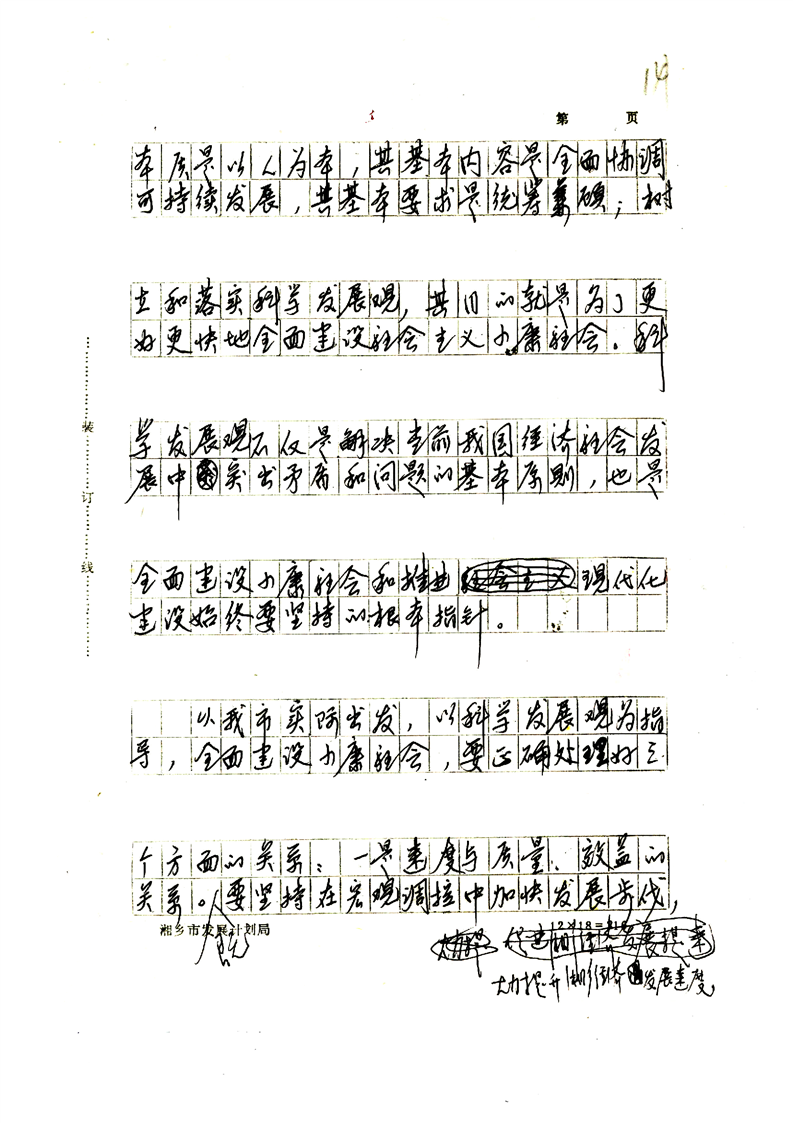 14
第 页
本质是以人为本，其基本内容是全面协调
可持续发展，其基本要求是统筹兼顾；树
立和落实科学发展观，其目的就是为了更
好更快地全面建设社会主义小康社会。科
学发展观不仅是解决当前我国经济社会发
展中突出矛盾和问题的基本原则，也是
全面建设小康社会和推进社会主义现代化
建设始终要坚持的根本指针。
从我市实际出发，以科学发展观为指
导，全面建设小康社会，要正确处理好三
个方面的关系：一是速度与质量、效益的
关系。要坚持在宏观调控中加快发展步伐，
湘乡市发展计划局
大力提升湘乡经济发展速度
装
订
线